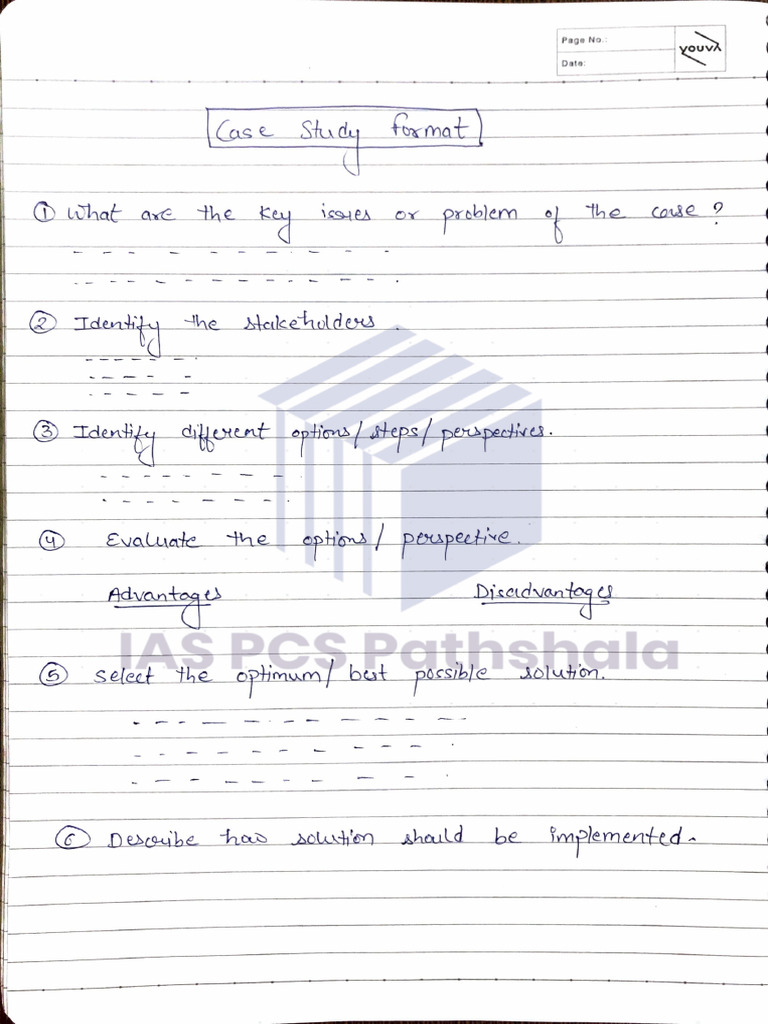 Page No.:
Date:
youva
Case Study format
① What are the key issues or problem of the case?
② Identify the stakeholders.
③ Identify different options/steps/perspectives.
④ Evaluate the options/perspective.
Advantages Disadvantages
IAS PCS Pathshala
⑤ Select the optimum/best possible solution.
⑥ Describe how solution should be implemented.